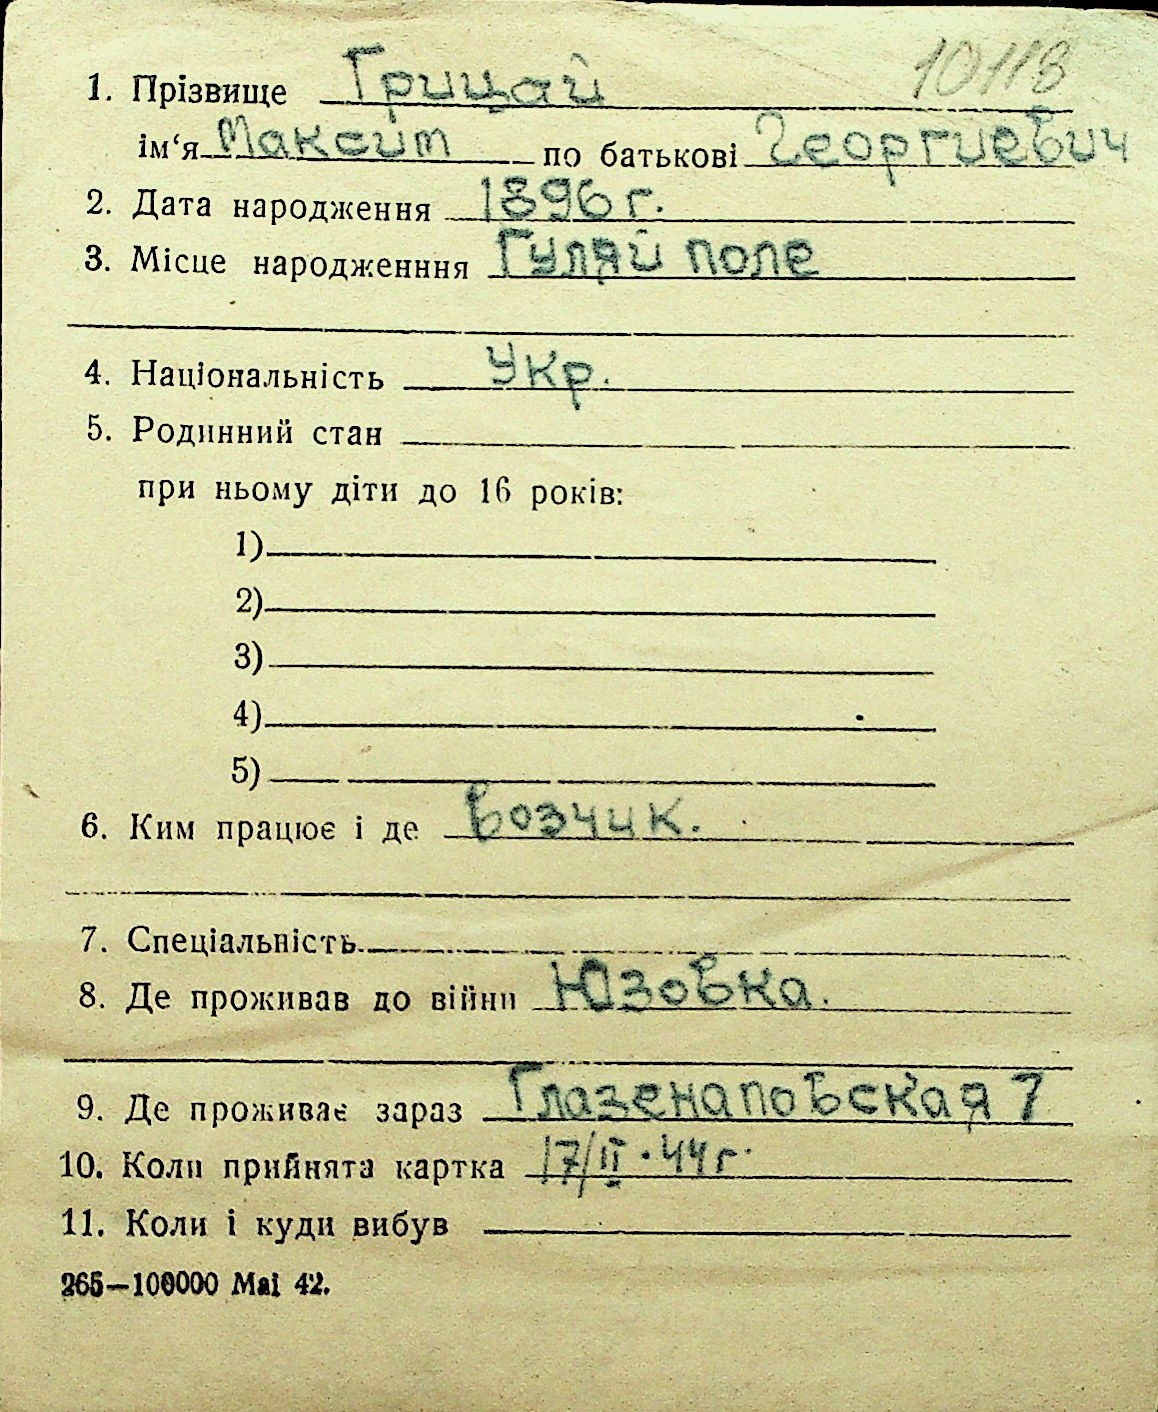 10118
1. Прізвище Грицай
ім‘я Максим по батькові Георгиевич
2. Дата народження 1896 г.
3. Місце народженння Гуляй поле
4. Національність Укр.
5. Родинний стан
при ньому діти до 16 років:
1)
2)
3)
4)
5)
6. Ким працює і де Возчик.
7. Спеціальність
8. Де проживав до війни Юзовка.
9. Де проживає зараз Глазенаповская 7
10. Коли прийнята картка 17/II・44 г.
11. Коли і куди вибув
265—100000 Mai 42.